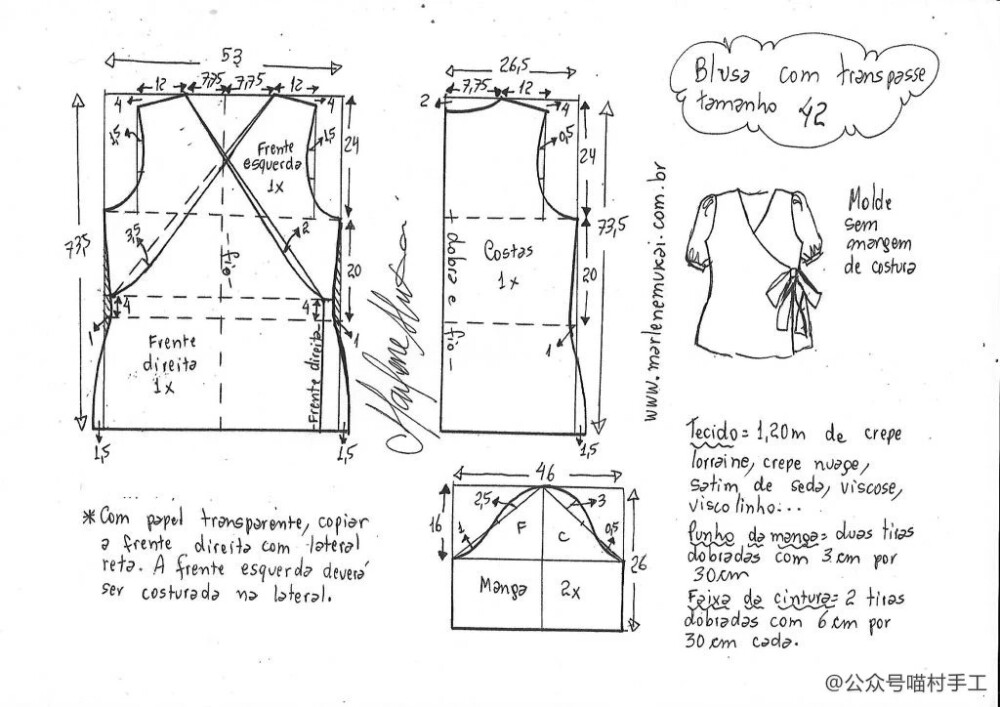 Blusa com transpasse
tamanho 42
53
12
7,75
7,75
12
4
4
1,5
1,5
Frente
esquerda
1x
24
73,5
3,5
2
fio
20
4
4
1
1
Frente
direita
1x
Frente direita
1,5
1,5
26,5
7,75
12
2
4
0,5
24
73,5
dobra e fio
Costas
1x
20
1
1,5
www.marlenemukai.com.br
Molde
sem
margem
de costura
46
2,5
3
16
1
F
C
0,5
26
Manga
2x
*Com papel transparente, copiar
a frente direita com lateral
reta. A frente esquerda deverá
ser costurada na lateral.
Tecido= 1,20m de crepe
lorraine, crepe nuage,
satim de seda, viscose,
viscolinho...
Punho da manga= duas tiras
dobradas com 3 cm por
30cm
Faixa da cintura= 2 tiras
dobradas com 6 cm por
30 cm cada.
@公众号喵村手工